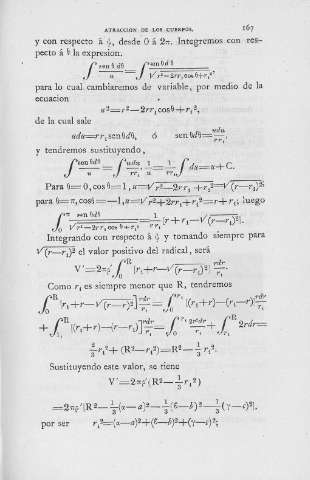 ATRACCION DE LOS CUERPOS. 167
y con respecto á ψ, desde 0 á 2π. Integremos con res-
pecto á θ la expresion.
∫ sen θ dθ / u = ∫ sen θ d θ / √r²−2rr₁cos θ+r₁²'
para lo cual cambiaremos de variable, por medio de la
ecuacion
u²=r²−2rr₁cosθ+r₁²,
de la cual sale
udu=rr₁senθdθ, ó sen θdθ=udu/rr₁.
y tendremos sustituyendo,
∫ sen θdθ/u = ∫ udu/rr₁ 1/u = 1/rr₁ ∫ du=u+C.
Para θ=0, cos θ=1, u=√r²−2rr₁+r₁²=√(r−r₁)²;
para θ=π, cosθ=−1, u=√r²+2rr₁+r₁²=r+r₁; luego
∫₀^π sen θdθ / √r²−2rr₁cos θ+r₁² = 1/rr₁ [r+r₁−√(r−r₁)²].
Integrando con respecto á ψ y tomando siempre para
√(r−r₁)² el valor positivo del radical, será
V'=2πρ'∫₀^R [r₁+r−√(r−r₁)²] rdr/r₁.
Como r₁ es siempre menor que R, tendremos
∫₀^R [r₁+r−√(r−r₁)²] rdr/r₁ = ∫₀^r₁ [(r₁+r)−(r₁−r)] rdr/r₁
+ ∫_r₁^R [(r₁+r)−(r−r₁)] rdr/r₁ = ∫₀^r₁ 2r²dr/r₁ + ∫_r₁^R 2rdr=
2/3 r₁²+(R²−r₁²)=R²−1/3 r₁².
Sustituyendo este valor, se tiene
V'=2πρ'(R²−1/3 r₁²)
=2πρ'[R²−1/3(α−a)²−1/3(6−b)²−1/3(γ−c)²],
por ser r₁²=(α−a)²+(6−b)²+(γ−c)²;